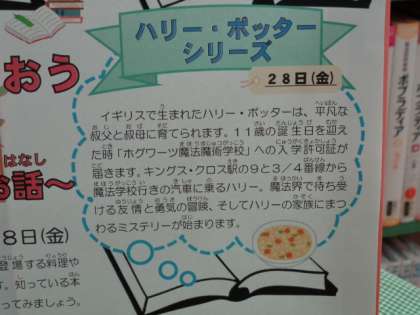 ハリー・ポッター
シリーズ
28日(金)
イギリスで生まれたハリー・ポッターは、平凡な
叔父と叔母に育てられます。11歳の誕生日を迎え
た時「ホグワーツ魔法魔術学校」への入学許可証が
届きます。キングス・クロス駅の9と3/4番線から
魔法学校行きの汽車に乗るハリー。魔法界で待ち受
ける友情と勇気の冒険、そしてハリーの家族にまつ
わるミステリーが始まります。
おう
はなし
お話〜
8日(金)
登場する料理や
す。知っている本
ってみましょう。